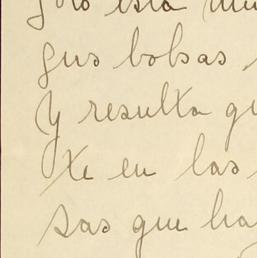 no está
sus bolsas,
y resulta qu
te en las
sas que ha